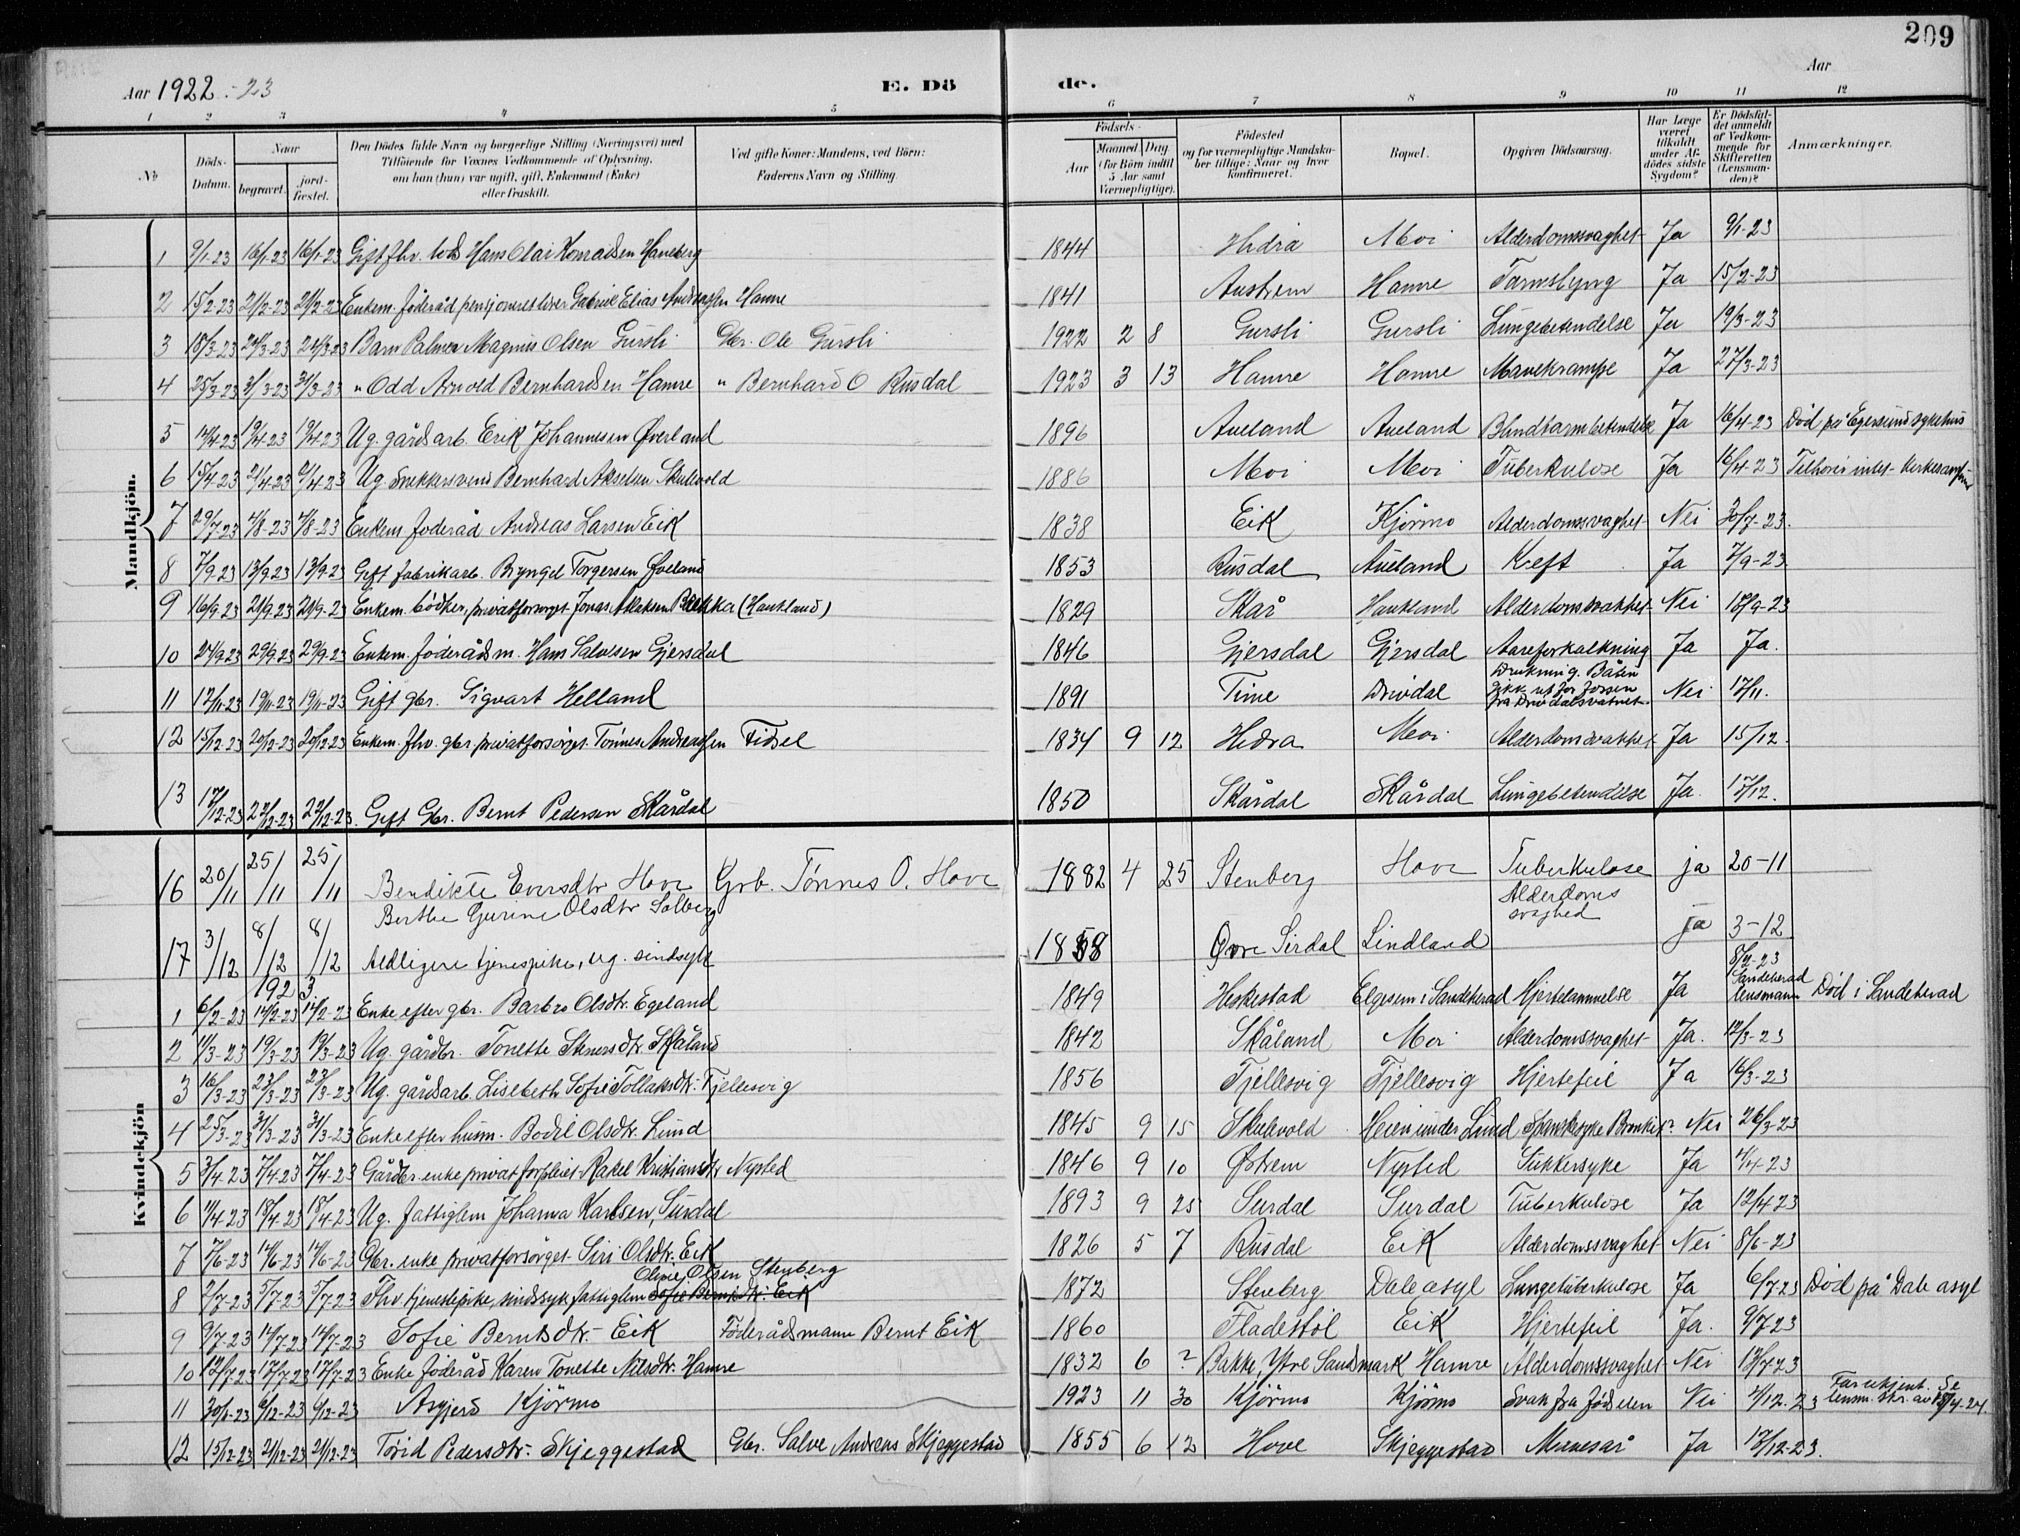 209
Aar 1922-23 E. Dö de. Aar
1 2 3 4 5 6 7 8 9 10 11 12
No
Döds-Datum.
Naar
begravet.
jord-fæstet.
Den Dödes fulde Navn og borgerlige Stilling (Næringsvei) med
Tilföiende for Voxnes Vedkommende af Oplysning,
om han (hun) var ugift, gift, Enkemand (Enke)
eller fraskilt.
Ved gifte Koner: Mandens, ved Börn:
Faderens Navn og Stilling.
Födsels-
Aar
Maaned Dag
(for Börn indtil
5 Aar samt
Værnepligtige).
Födested
og for værnepligtige Mandska-
ber tillige: Naar og hvor
konfirmeret.
Bopæl.
Opgiven Dödsaarsag.
Har Læge
været
tilkaldt
under Af-
dödes sidste
Sygdom?
Er Dödsfal-
det anmeldt
af Vedkom-
mende for
Skifteretten
(Lensman-
den)?
Anmærkninger.
Mandkjön.
1 9/1-23 16/1-23 16/1-23 Gift fhv. lods Hans Olai Konradsen Haneberg 1844 Hidra Moi Alderdomssvaghet Ja 9/1-23
2 15/2-23 21/2-23 21/2-23 Enkem. föderåd Gabriel Elias Andreassen Hamre 1841 Austrem Hamre Tarmslyng Ja 15/2-23
3 18/3-23 24/3-23 24/3-23 Barn Palmer Magnus Olsen Gursli Gbr. Ole Gursli 1922 2 8 Gursli Gursli Lungebetendelse Ja 19/3-23
4 25/3-23 31/3-23 31/3-23 " Odd Arnold Bernhardsen Hamre " Bernhard O Rusdal 1923 3 13 Hamre Hamre Mavekrampe Ja 27/3-23
5 14/4-23 19/4-23 19/4-23 Ug. gårdsarb. Erik Johannesen Øverland 1896 Aueland Aueland Blindtarmbetendelse Ja 16/4-23 Död på Egersund sykehus
6 15/4-23 21/4-23 21/4-23 Ug. Snekkersvend Bernhard Akselsen Skulevold 1886 Moi Moi Tuberkulose Ja 16/4-23 Tilhörer intet kirkesamfund
7 29/7-23 4/8-23 4/8-23 Enkem föderåd Andreas Larsen Eik 1838 Eik Kjörmo Alderdomssvaghet Nei 30/7-23.
8 7/9-23 13/9-23 13/9-23 Gift fabrikarb. Bryngel Torgersen Öveland 1853 Rusdal Aueland Kreft Ja 7/9-23
9 16/9-23 21/9-23 21/9-23 Enkem. bödker, privatforsörget Jonas Aslaksen Bakka (Haukland) 1829 Skår Haukland Alderdomssvakhet Nei 18/9-23
10 24/9-23 29/9-23 29/9-23 Enkem. föderådsm. Hans Salvesen Gjersdal 1846 Gjersdal Gjersdal Aareforkalkning Ja Ja.
11 12/11-23 19/11-23 19/11-23 Gift gbr. Sigvart Helland 1891 Time Drivdal Drukning. Båten
gikk ut for fossen
fra Drivdalsvatnet. Nei 17/11.
12 15/12-23 20/12-23 20/12-23 Enkem. fhv. gbr privatforsörget Tönnes Andreassen Fidsel 1834 9 12 Hidra Moi Alderdomssvakhet Ja 15/12.
13 17/12-23 22/12-23 22/12-23. Gift Gbr. Bernt Pedersen Skårdal 1850 Skårdal Skårdal Lungebetendelse Ja. 17/12.
Kvindekjön
16 20/11 25/11 25/11 Bendikte Eversdtr Hove Grb. Tönnes O. Hove 1882 4 25 Stenberg Hove Tuberkulose ja 20-11
17 3/12 8/12 8/12 Berthe Gurine Olsdtr Solberg
Aldligere tjenespike, ug. sindsyk 1858 Övre Sirdal Lindland Alderdoms
svaghed ja 3-12
1923
1 6/2-23 14/2-23 14/2-23 Enke efter gbr. Barbro Olsdtr. Egeland 1849 Heskestad Elgesem i Sandeherad Hjertelammelse Ja 8/2-23
Sandeherad
lensmann Död i Sandeherad
2 11/3-23 19/3-23 19/3-23 Ug. gårdbr. Tonette Skåland 1842 Skåland Moi Alderdomssvaghet Ja. 12/3-23
3 16/3-23 23/3-23 23/3-23 Ug. gårdsarb. Lisebeth Sofie Tollaksdtr. Fjellesvig 1856 Fjellesvig Fjellesvig Hjertefeil Ja 16/3-23
4 25/3-23 31/3-23 31/3-23 Enke efter husm. Bodil Olsdtr. Lund 1845 9 15 Skulevold Heien under Lund Spanskesyke Bronkit? Nei 26/3-23
5 3/4-23 7/4-23 7/4-23 Gårdbr. enke privat forpleiet Rakel Kristiansdtr Nysted 1846 9 10 Östrem Nysted Sukkersyke Ja 4/4-23
6 11/4-23 18/4-23 18/4-23 Ug. fattiglem Johanna Karlsen, Surdal 1893 9 25 Surdal Surdal Tuberkulose Ja 12/4 23
7 7/6-23 14/6-23 14/6-23 Gbr. enke privatforsörget Siri Olsdtr. Eik 1826 5 7 Rusdal Eik Alderdomssvaghet Nei 8/6-23
8 2/7-23 5/7-23 5/7-23 Fhv. tjenestepike, sindssyk fattiglem Sofie Berntsdtr. Eik Olsen Stenberg 1872 Stenberg Dale asyl Lungetuberkulose Ja 6/7-23 Död på Dale asyl
9 9/7-23 14/7-23 14/7-23 Sofie Berntsdtr. Eik Föderådsmann Bernt Eik 1860 Fladestöl Eik Hjertefeil Ja. 9/7 23
10 12/7-23 17/7-23 17/7-23 Enke föderåd Karen Tonette Nilsdtr. Hamre 1832 6 ? Bakke, Ytre Sandsmark Hamre Alderdomssvaghet Nei 13/7-23
11 30/11-23 6/12-23 6/12-23 Asgjerd Kjörmo 1923 11 30 Kjörmo Kjörmo Svak fra födselen Nei 4/12. 23 Se
lensm. skr. av
12 15/12-23 21/12-23 21/12-23 Torid Pedersdtr. Skjeggestad Gbr. Salve Andreas Skjeggestad 1855 6 12 Hove Skjeggestad Ja 17/12-23.